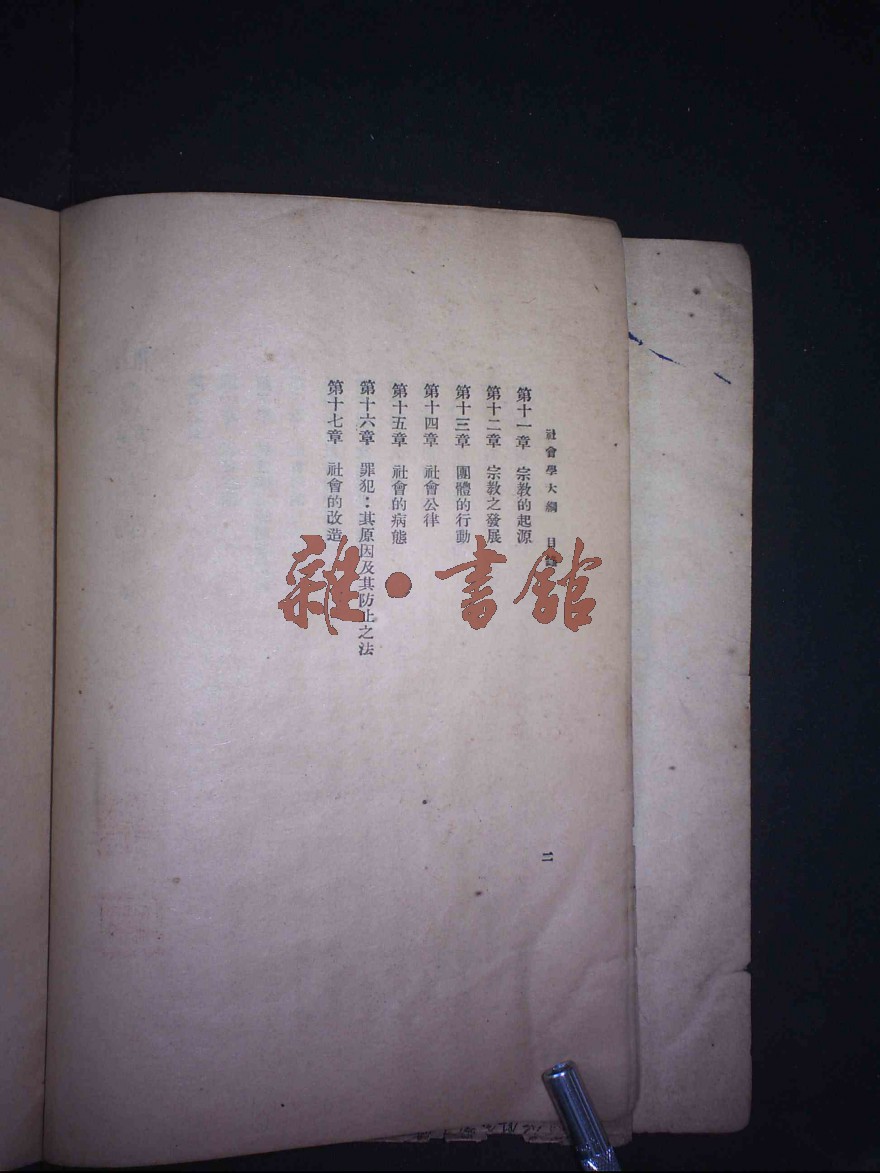 社會學大綱 目錄
第十一章 宗教的起源
第十二章 宗教之發展
第十三章 團體的行動
第十四章 社會公律
第十五章 社會的病態
第十六章 罪犯：其原因及其防止之法
第十七章 社會的改造
二
雜·書館